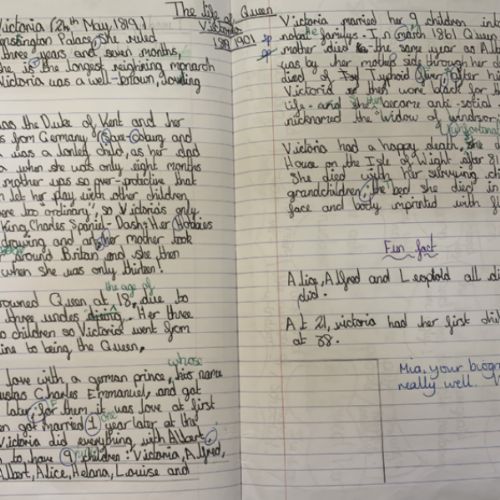 The life of Queen
Victoria
1819 1901
Victoria (24th May, 1819)
Kensington Palace, She ruled
three years and seven months,
she is the longest reighning monarch
Victoria was a well-known, loving
was the Duke of Kent and her
s from Germany of Saxe-Coburg and
was a lonley child, as her dad
when she was only eight months
mother was so over-protictive that
let her play with other children
were too ordinary", so Victorias only
King Charles Spaniel: Dash. Her Hobbies
drawing and her mother took
around Britan and she then
when she was only thirteen!
the age of
crowned Queen, at 18, due to
three uncles dieing. Her three
no children so Victoria went from
line to being the Queen.
whose
love with a german prince, his name
Charles Emmanuel, and got
later, for them it was love at first
got married 1 one year later at that
Victoria did everything with Albert,
to have 9 children: Victoria, Alfred,
Albert, Alice, Helena, Louise and
Victoria married her 9 children into
familys. In (march 1861) Queen
mother died the same year as Al
was by her mother side through her de
died of Typhoid fiver. After he
Victoria then wore black for the
life and she became anti-social
nicknamed the "Widow of windsor"
Victoria had a happy death, she d
House on the Isle of Wight after 8
She died with her surviving chi
grandchildren, the bed she died in
face and body imprinted with fl
Fun fact
Alice, Alfred and Leopold all di
did.
At 21, victoria had her first chil
at 38.
Mia, your biogr
really well.